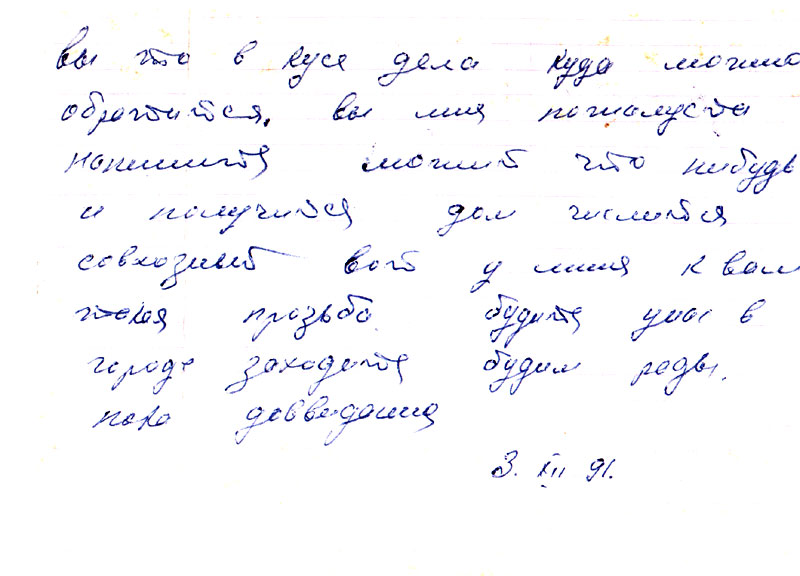 вы что в кусе дела куда можно
обротится. вы мия пожалуста
напишите можит что нибудь
и получится дом числится
совхозный вот у миня к вам
такая прозьба будите унас в
городе заходите будим рады.
пока досведания
3. XII 91.